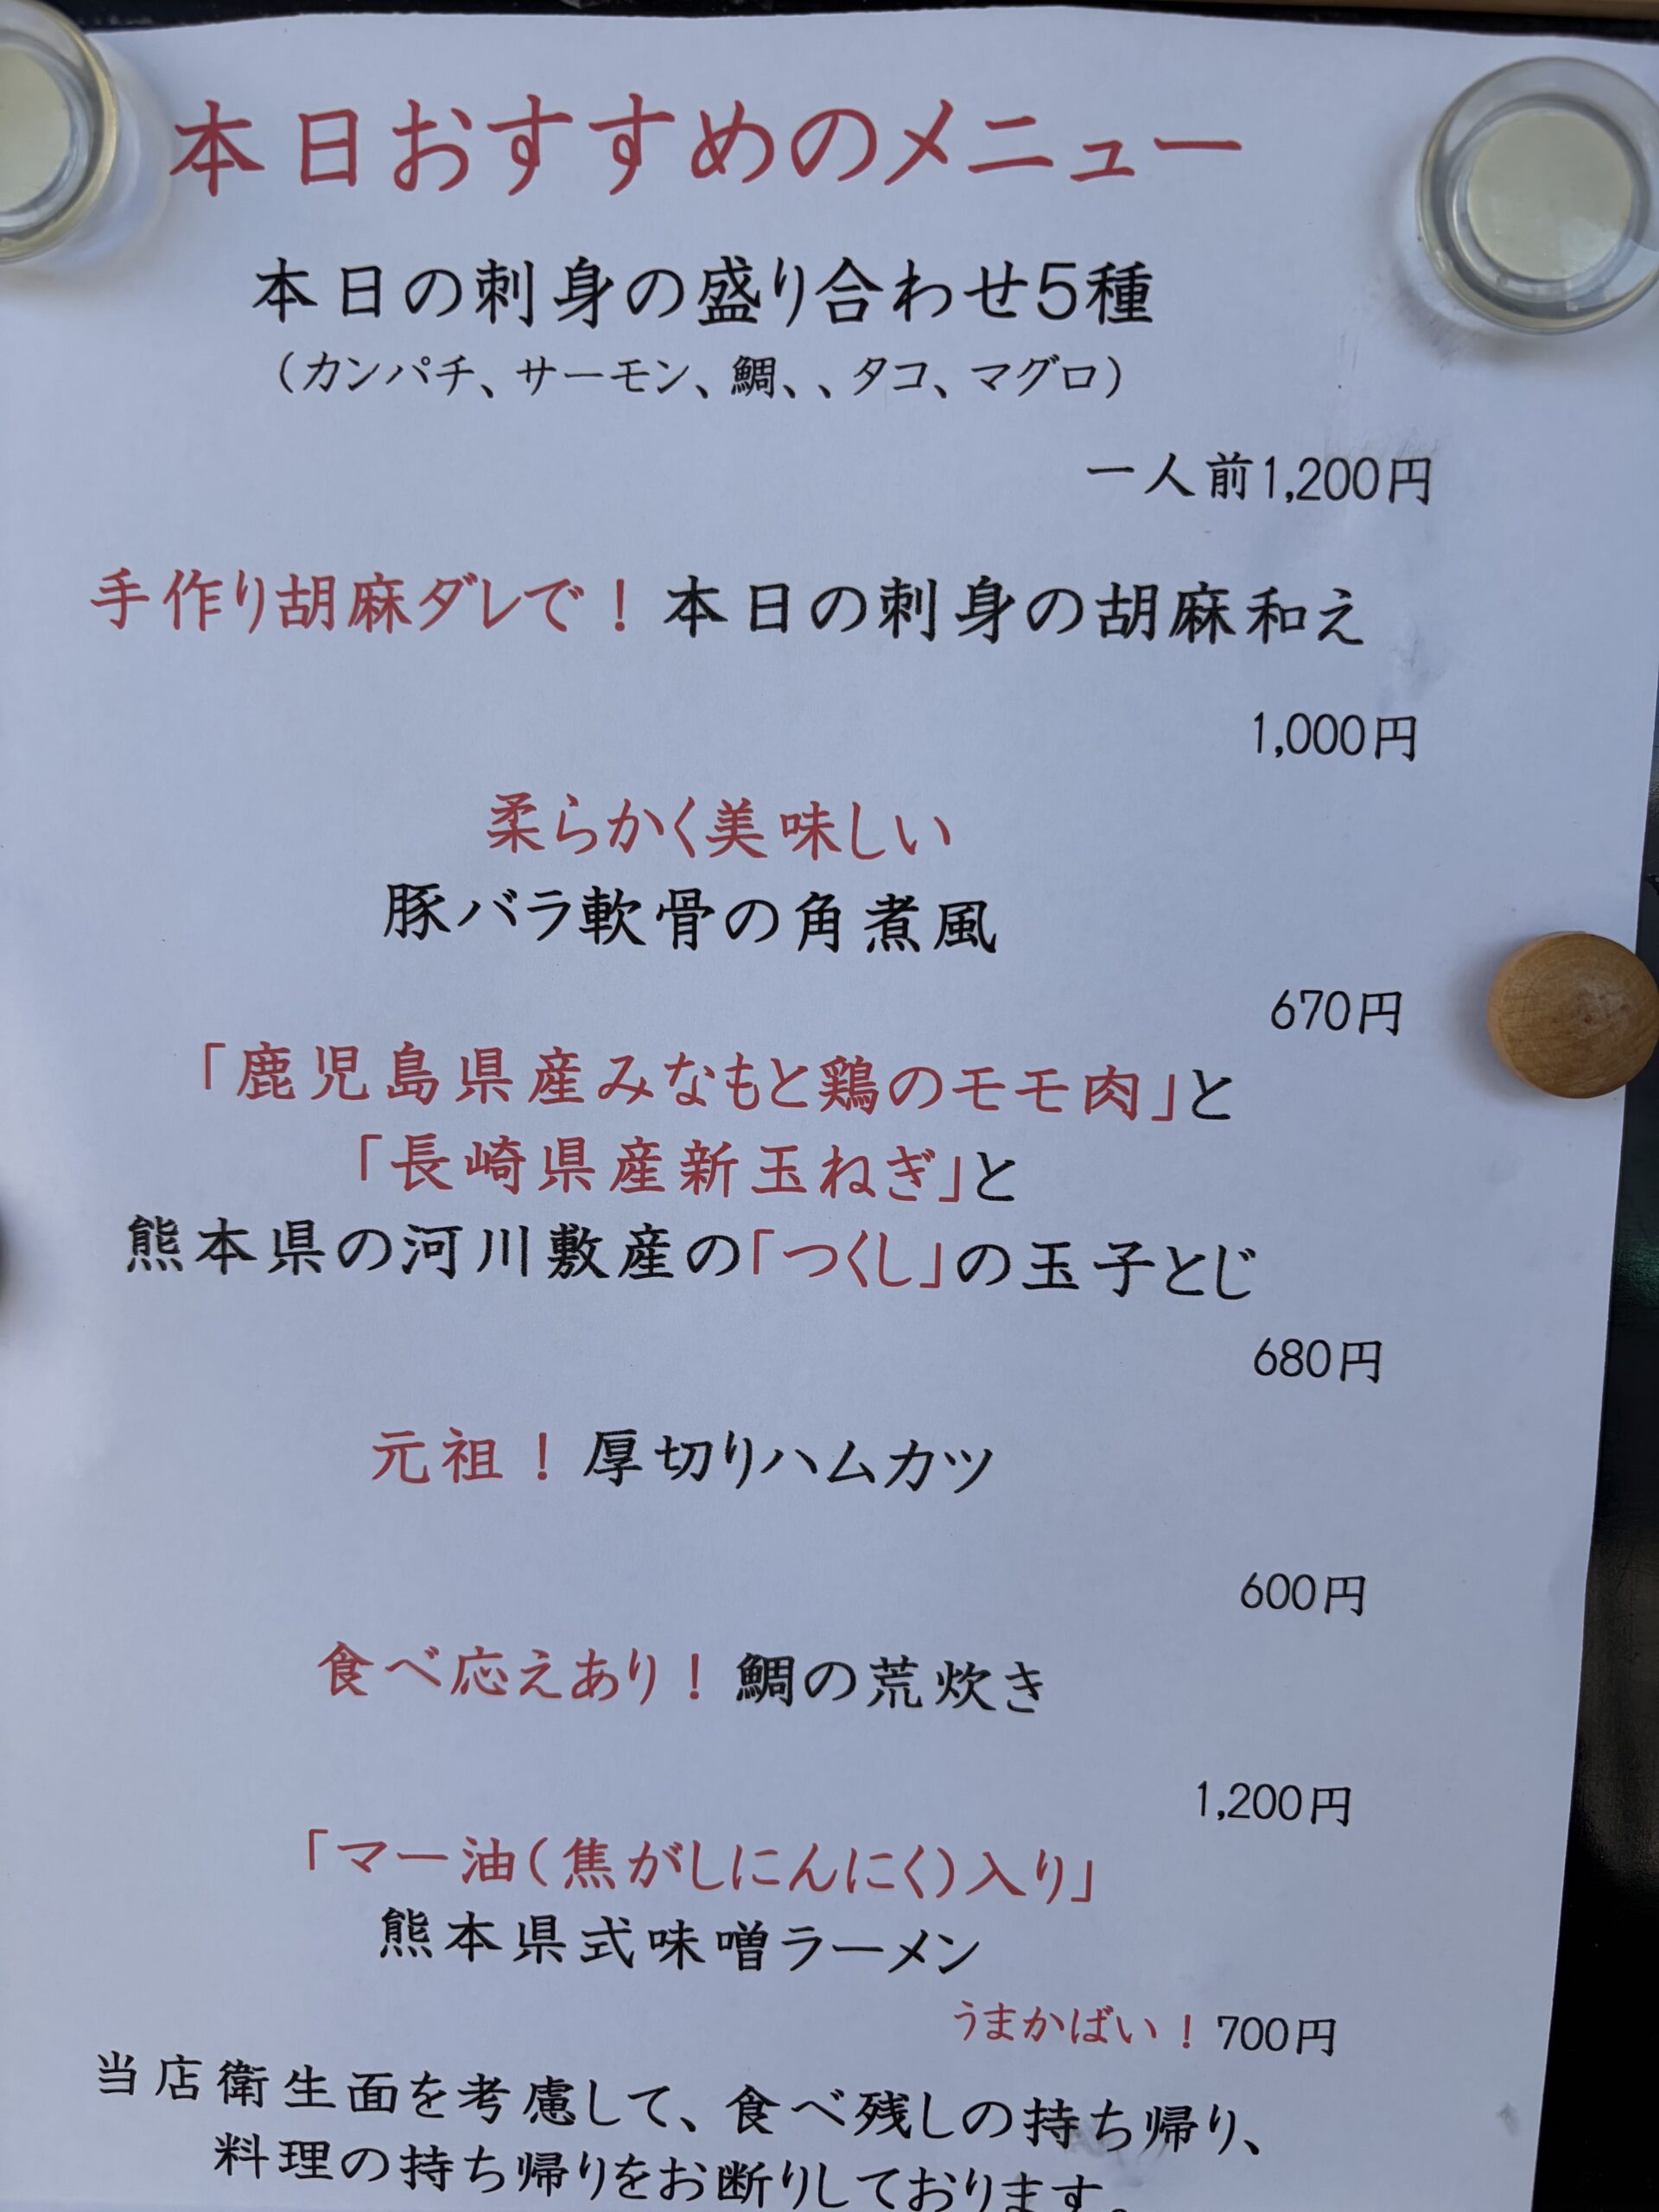 本日おすすめのメニュー
本日の刺身の盛り合わせ5種
（カンパチ、サーモン、鯛、、タコ、マグロ）
一人前1,200円
手作り胡麻ダレで！本日の刺身の胡麻和え
1,000円
柔らかく美味しい
豚バラ軟骨の角煮風
670円
「鹿児島県産みなもと鶏のモモ肉」と
「長崎県産新玉ねぎ」と
熊本県の河川敷産の「つくし」の玉子とじ
680円
元祖！厚切りハムカツ
600円
食べ応えあり！鯛の荒炊き
1,200円
「マー油（焦がしにんにく）入り」
熊本県式味噌ラーメン
うまかばい！700円
当店衛生面を考慮して、食べ残しの持ち帰り、
料理の持ち帰りをお断りしております。